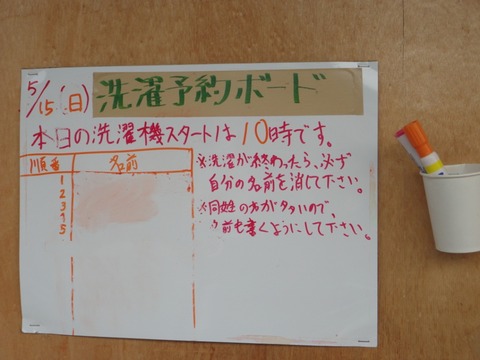 5/15(日)
洗濯予約ボード
本日の洗濯機スタートは10時です。
順番 名前
1
2
3
4
5
※洗濯が終わったら、必ず
自分の名前を消して下さい。
※同姓の方が多いので、
名前も書くようにして下さい。